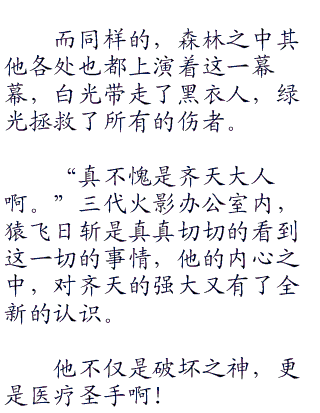 而同样的，森林之中其
他各处也都上演着这一幕
幕，白光带走了黑衣人，绿
光拯救了所有的伤者。
“真不愧是齐天大人
啊。”三代火影办公室内，
猿飞日斩是真真切切的看到
这一切的事情，他的内心之
中，对齐天的强大又有了全
新的认识。
他不仅是破坏之神，更
是医疗圣手啊！